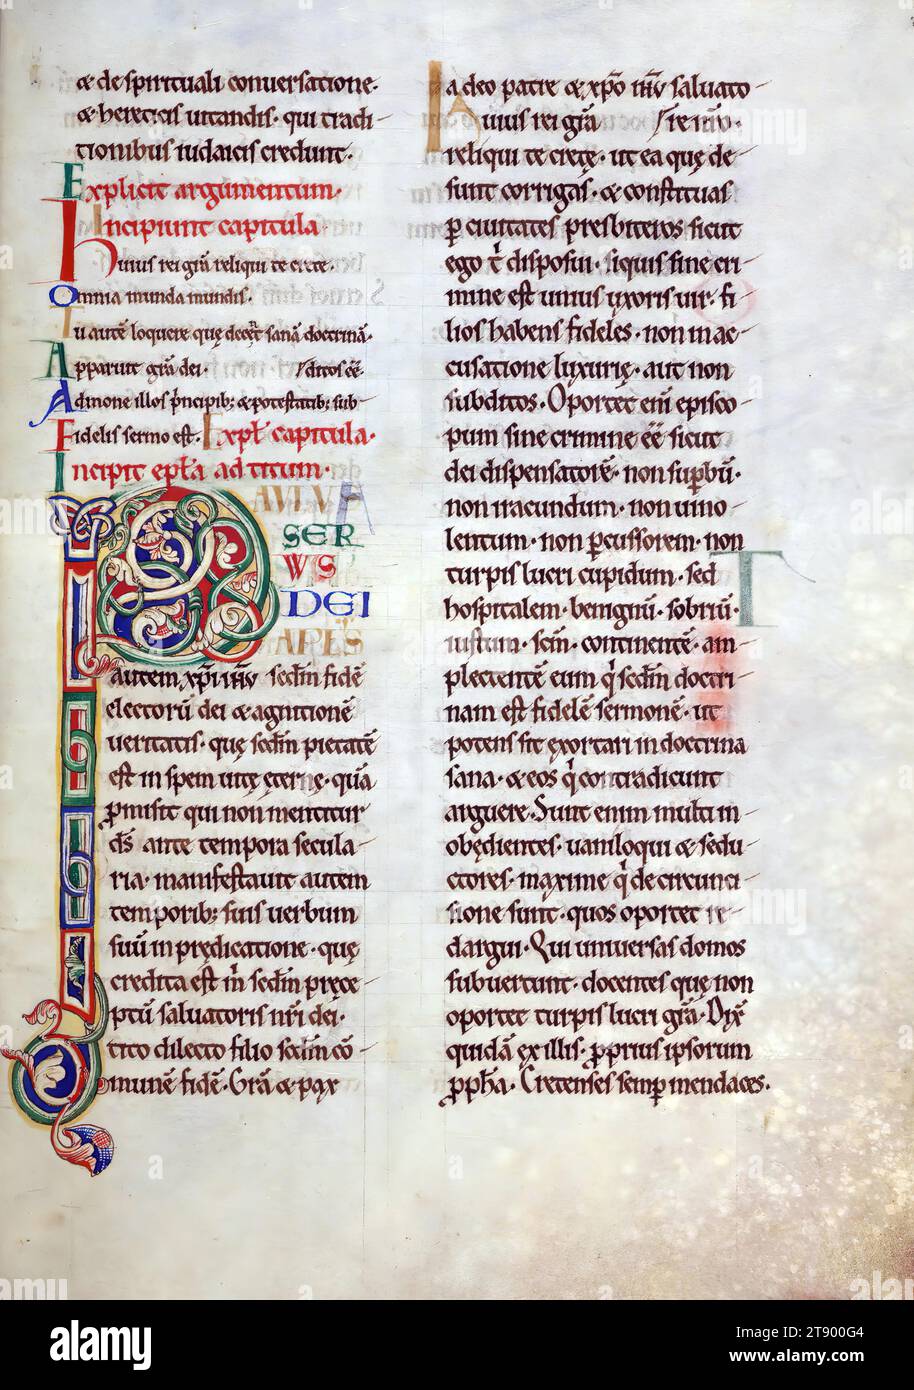 & de spirituali conversatione·
& hereticis uitandis· qui tradi-
tionibus iudaicis credunt·
Explicit argumentum·
Incipiunt capitula·
Huius rei grā reliqui te crete·
Omnia munda mundis·
Tu autē loquere quę decēt sanā doctrinā·
Apparuit grā dei· ditos ēē·
Admone illos p̄ncipib; & potestatib; sub-
Fidelis sermo est· Expl̄ capitula·
Incipit epl̄a ad titum·
PAULUS
SER
VVS
DEI
APL̄S
autem xp̄i ih̄u sed̄m fidē
electorū dei & agnitionē
ueritatis· quę sed̄m pietatē
est in spem uitę eternę· quā
promisit qui non mentitur
d̄s ante tempora secula-
ria· manifestauit autem
temporib; suis uerbum
suū in prędicatione· quę
credita est m̄ sed̄m pręce-
ptū saluatoris nr̄i dei·
tito dilecto filio sed̄m cō-
munē fidē· Grā & pax
a deo patre & xp̄o ih̄u saluato-
Huius rei grā re nr̄o·
reliqui te cretę· ut ea quę de-
sunt corrigas· & constituas
p̄ ciuitates presbiteros sicut
ego t̄ disposui· siquis sine cri-
mine est unius uxoris uir· fi-
lios habens fideles· non in ac-
cusatione luxurię· aut non
subditos· Oportet eni̅ episco-
pum sine crimine ēē sicut
dei dispensatorē· non supbū·
non iracundum· non uino-
lentum· non pcussorem· non
turpis lucri cupidum· sed
hospitalem· benignū· sobriū·
iustum· sc̄m· continentē· am-
plectentē eum q̄ sed̄m doctri-
nam est fidelē sermonē· ut
potens sit exortari in doctrina
sana· & eos q̄ contradicunt
arguere· Sunt enim multi in-
obędientes· uaniloqui & sedu-
ctores· maxime q̄ de circunci-
sione sunt· quos oportet re-
dargui· Qui uniuersas domos
subuertunt· docentes quę non
oportet turpis lucri grā· Dix̄
quidā ex illis· proprius ipsorum
pph̄a· Cretenses semp mendaces·
T
alamy
Image ID: 2T900G4
www.alamy.com